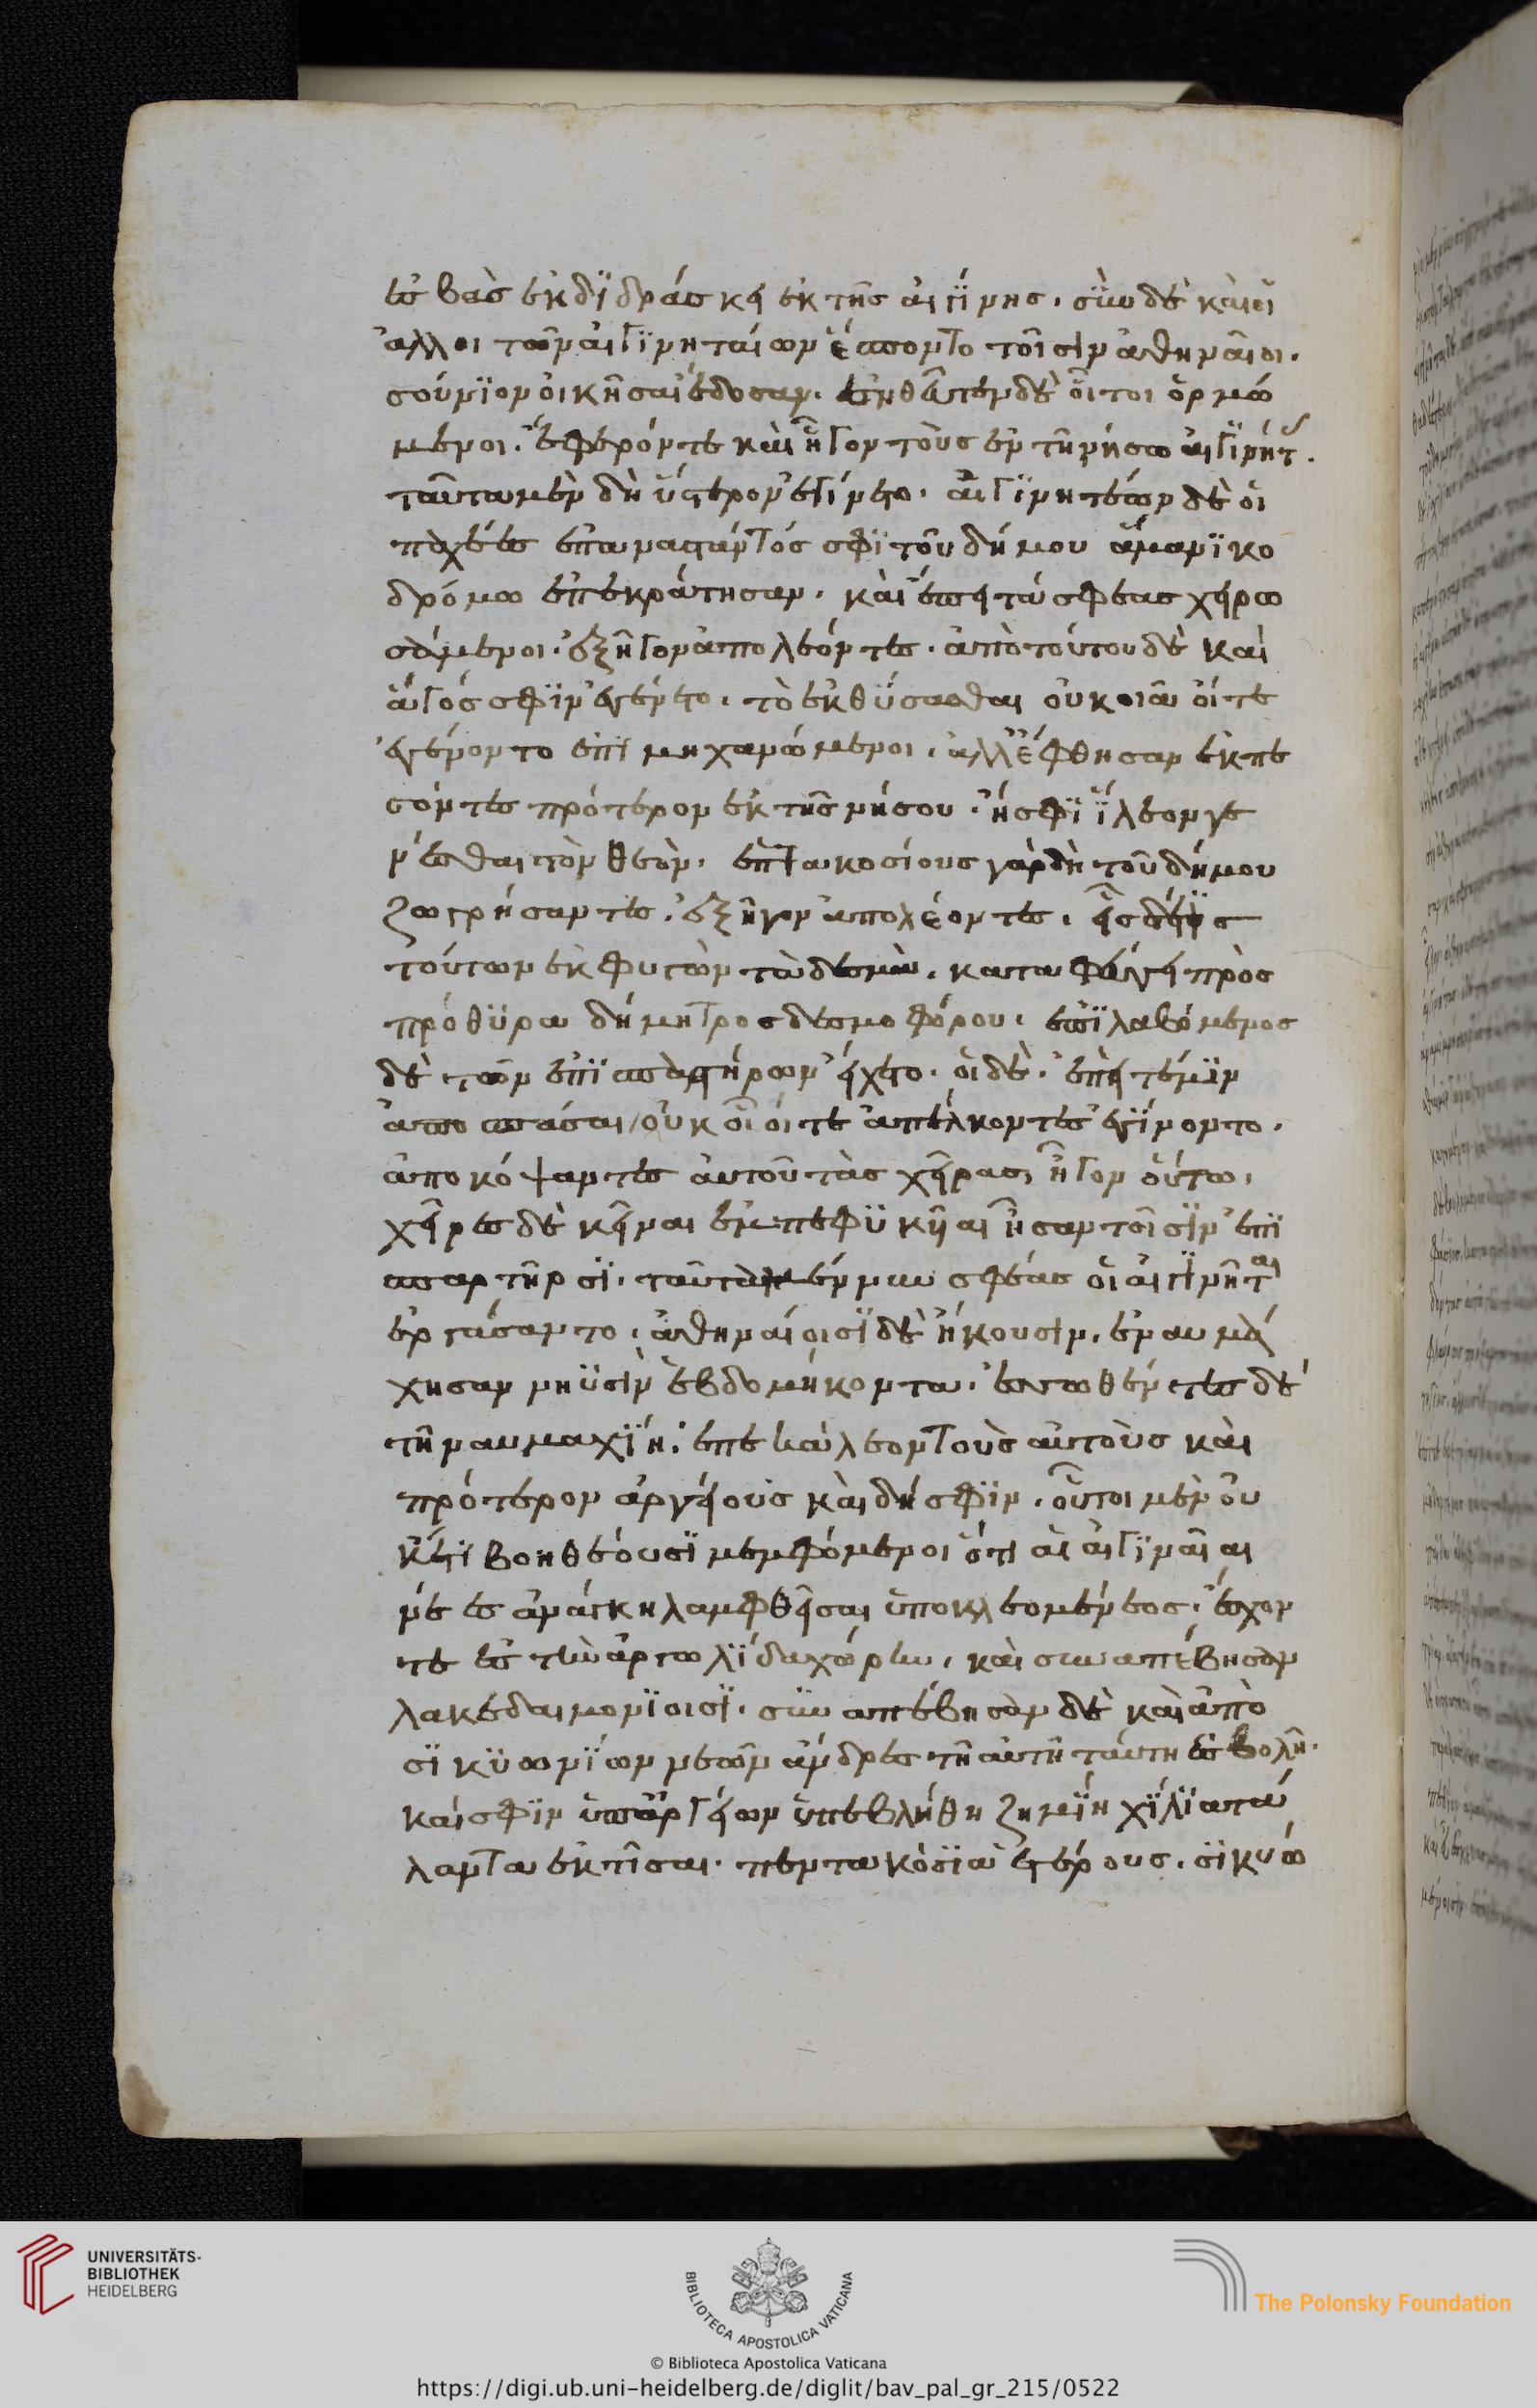 ἐσβὰς ἐκδϊδράσκει ἐκ τῆς αἰγίνης. σὺν δὲ καὶ οἱ
ἄλλοι τῶν αἰγϊνητάων ἕσποντο τοῖσιν ἀθηναῖοι.
σούνϊον οἰκῆσαι ἔδοσαν. ἐνθεῦτεν δὲ οἶτοι ὁρμώ
μενοι. ἔφερόν τε καὶ ἦγον τοὺς ἐν τῆ νήσω αἰγϊνήτ.
ταῦτα μὲν δὴ ὕστερον ἐγίνετο. αἰγϊνητέων δὲ οἱ
παχέες ἐπαναστάντός σφϊ τοῦ δήμου ἅμα νϊκο
δρόμω ἐπεκράτησαν. καὶ ἔπειτά σφεας χειρω
σάμενοι. ἐξῆγον ἀπολέοντες. ἀπὸ τούτου δὲ καὶ
ἄγός σφϊν ἐγένετο. τὸ ἐκθύσασθαι οὐκ οἷοί τε
ἐγένοντο ἐπι μηχανώμενοι. ἀλλ' ἔφθησαν ἐκπε
σόντες πρότερον ἐκ τῆς νήσου. ἤ σφϊ ἵλεον γε
νέσθαι τὸν θεόν. ἑπτακοσίους γὰρ δὴ τοῦ δήμου
ζωγρήσαντες. ἐξῆγον ἀπολέοντες. εἷς δέ τϊς
τούτων ἐκφυγὼν τὰ δεσμὰ. καταφεύγει πρὸς
πρόθϋρα δήμητρος δεσμοφόρου. ἐπϊλαβόμενος
δὲ τῶν ἐπϊσπαστήρων εἴχετο. οἱ δὲ. ἐπεί τέ μϊν
ἀποσπάσαι οὐκ οἷοί τε ἀπέλκοντες ἐγίνοντο.
ἀποκόψαντες αὐτοῦ τὰς χεῖρας, ἦγον οὕτω.
χεῖρες δὲ κεῖναι ἐμπεφϋκῆαι ἦσαν τοῖσϊν ἐπϊ
σπαρτῆρσϊ. ταῦτα μέν νυν σφέας οἱ αἰγϊνῆται
ἐργάσαντο. ἀθηναίοισϊ δὲ ἥκουσιν. ἐναυμά
χησαν νηϋσὶν ἑβδομήκοντα. ἑσσωθέντες δὲ
τῆ ναυμαχϊη. ἐπεκάλεον τοὺς αὐτοὺς καὶ
πρότερον ἀργείους καὶ δή σφϊν. οὗτοι μὲν οὐ
κέτϊ βοηθέουσϊ μεμφόμενοι ὅτι αἱ αἰγϊναῖαι
νέες ἀνάγκη λαμφθεῖσαι ὑπὸ κλεομένεος. ἔσχον
τε ἐς τὴν ἀργολϊδα χώρην. καὶ συναπέβησαν
λακεδαιμονϊοισϊ. συναπέβησαν δὲ καὶ ἀπὸ
σϊκϋωνϊων νεῶν ἄνδρες τῆ αὐτῆ ταύτη ἐσβολῆ.
καί σφϊν ὑπ' ἀργείων ὑπεβλήθη ζημϊη χϊλϊα τά
λαντα ἐκτῖσαι. πεντακόσϊα ἑτέρους. σϊκυώ
UNIVERSITÄTS-
BIBLIOTHEK
HEIDELBERG
BIBLIOTECA APOSTOLICA VATICANA
The Polonsky Foundation
© Biblioteca Apostolica Vaticana
https://digi.ub.uni-heidelberg.de/diglit/bav_pal_gr_215/0522